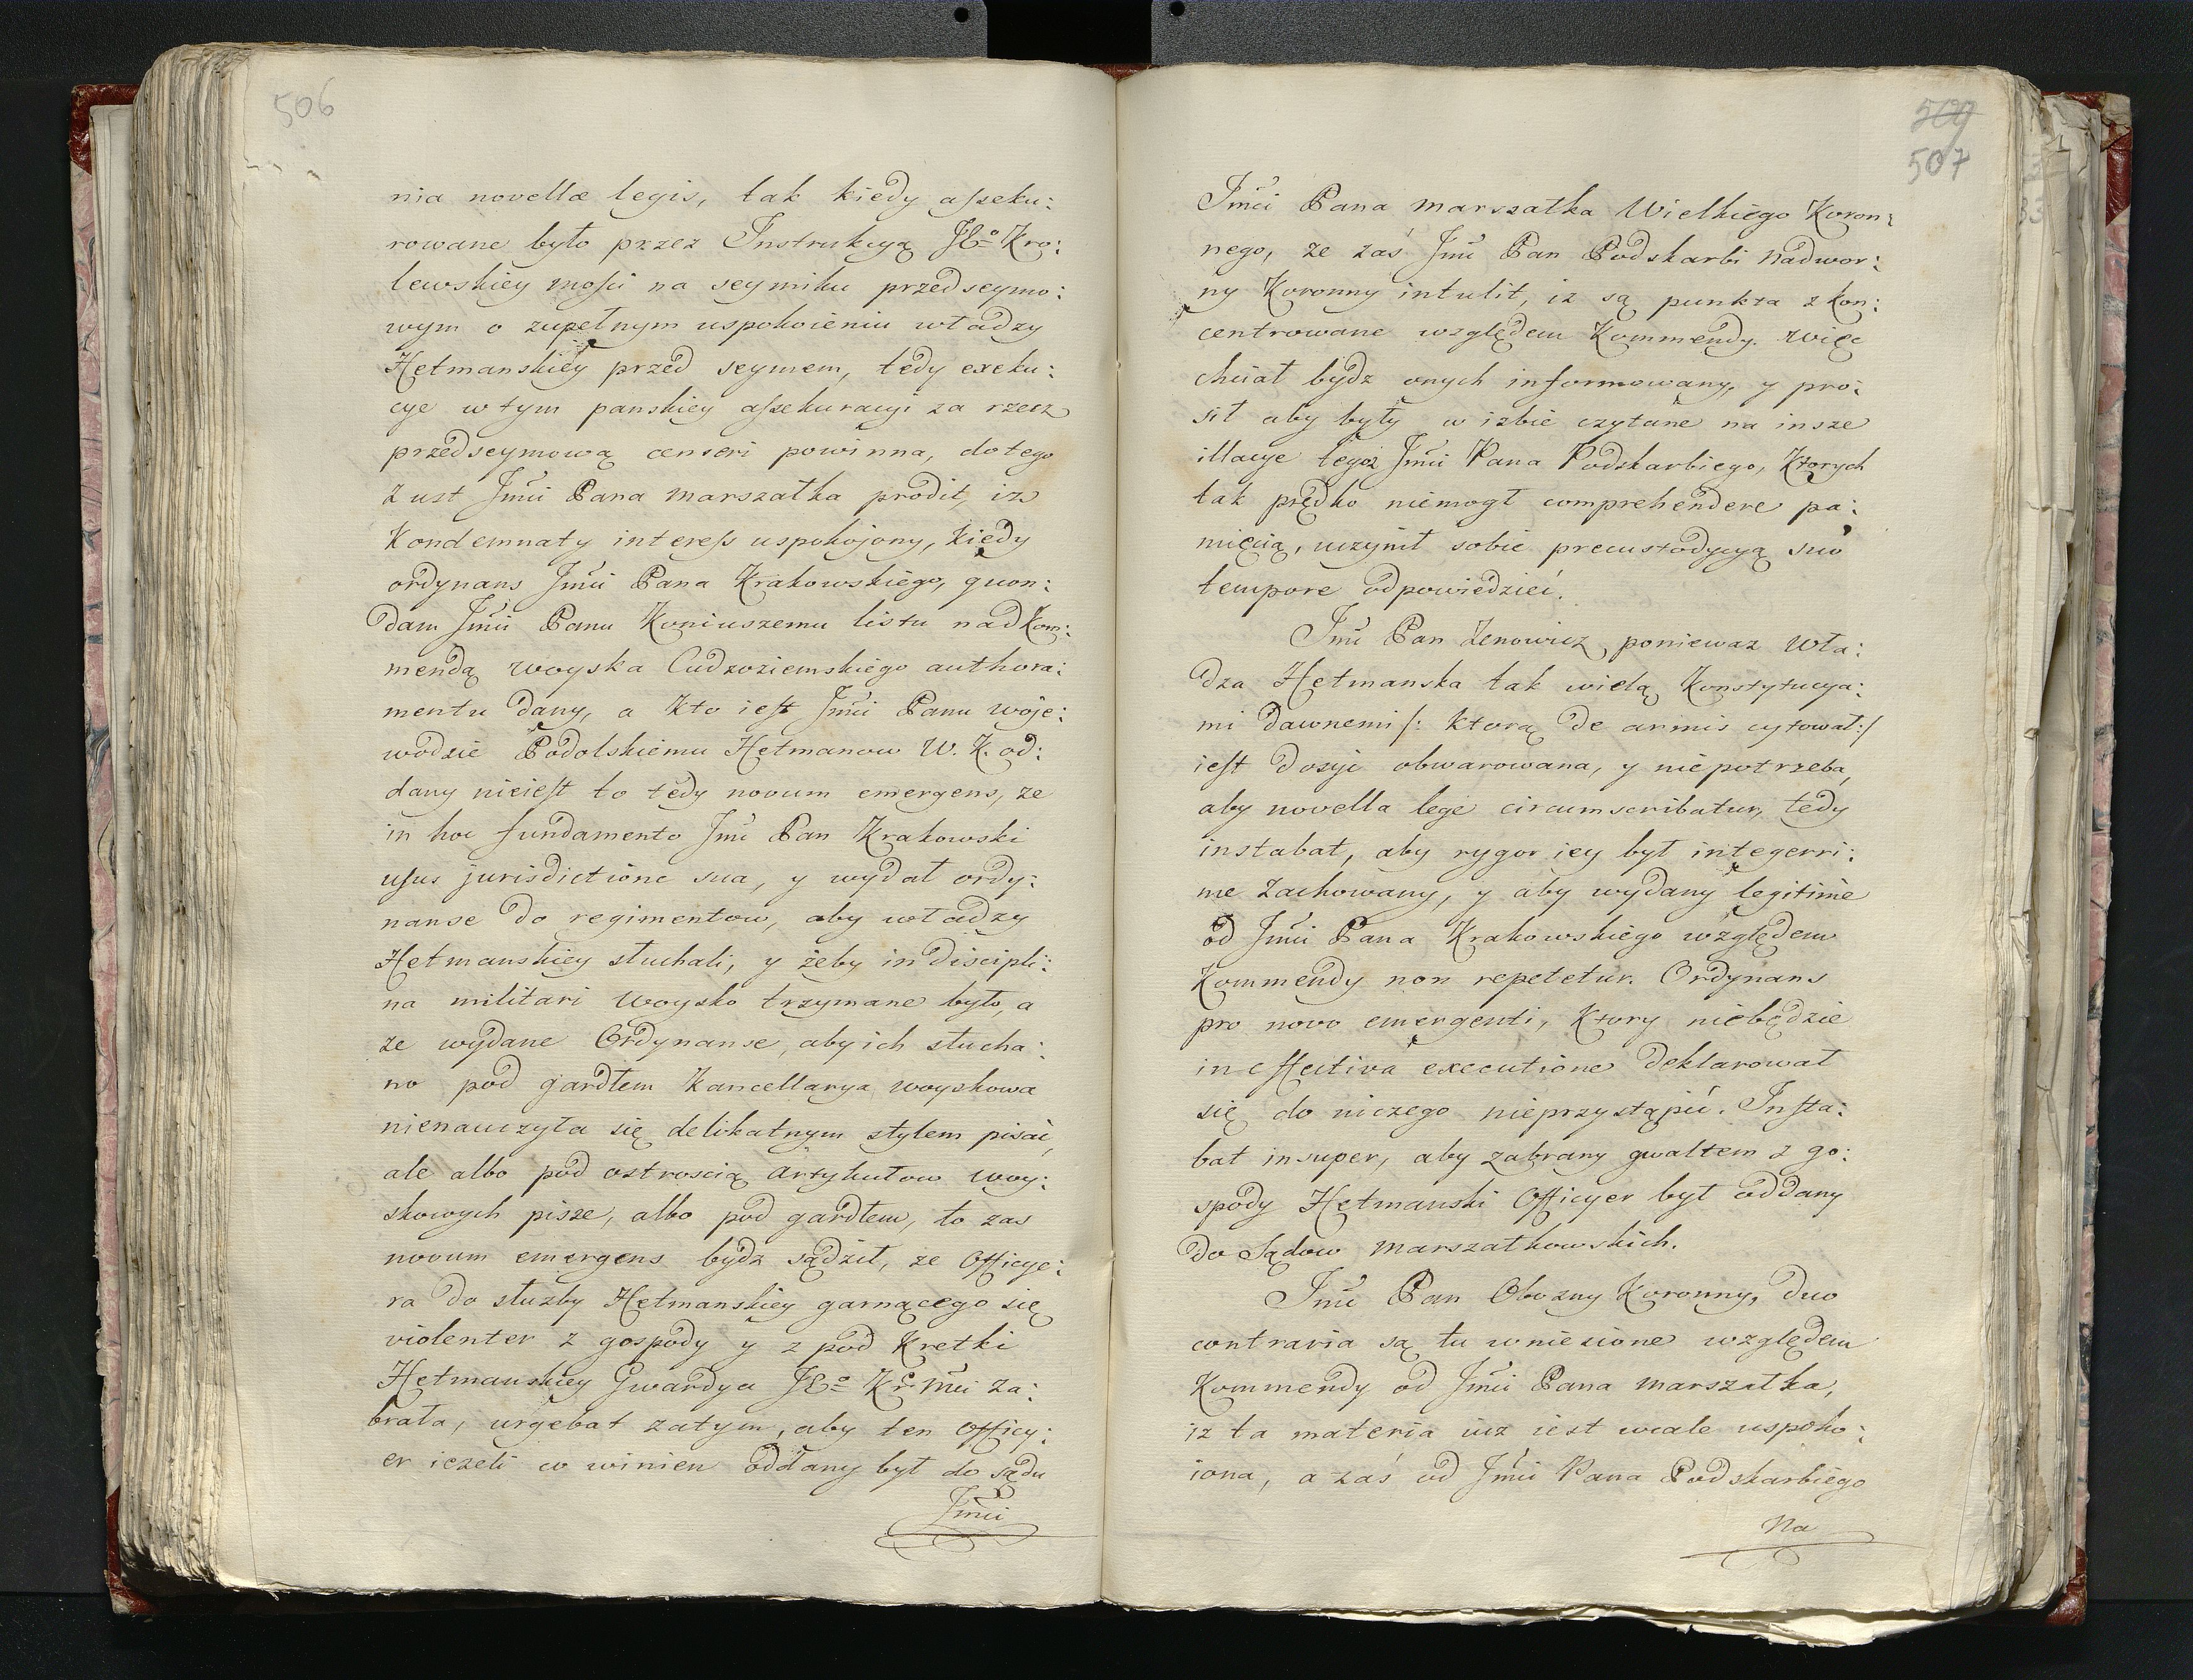 506
nia novellæ legis, tak kiedy asseku:
rowane było przez Instrukcyą JEº Kro:
lewskiey mości na seymiku przedseymo:
wym o zupełnym uspokoieniu władzy
Hetmanskiey przed seymem, tedy exeku:
cye w tym panskiey assekuracyi za rzecz
przedseymową censeri powinna, do tego
z ust Jmci Pana Marszałka prodit, iz
Kondemnaty interess uspokojony, kiedy
ordynans Jmci Pana Krakowskiego, quon:
dam Jmci Panu Koniuszemu listu nad Kom:
mendą woyska Cudzoziemskiego authora:
mentu dany, a kto iest Jmci Panu woje:
wodzie Podolskiemu Hetmanow W. K. od:
dany nieiest to tedy novum emergens, ze
in hoc fundamento Jmć Pan Krakowski
usus jurisdictione sua, y wydał ordy:
nanse do regimentow, aby władzy
Hetmanskiey słuchali, y żeby in discipli:
na militari woysko trzymane było, a
ze wydane Ordynanse, aby ich słucha:
no pod gardłem Kancellarya woyskowa
nienauczyła się delikatnym stylem pisać,
ale albo pod ostroscią artykułow woy:
skowych pisze, albo pod gardłem, to zas
novum emergens bydz sądził, ze Officye:
ra do słuzby Hetmanskiey garnącego się
violenter z gospody y z pod Kretki
Hetmanskiey Gwardya JEº Kr Mci za:
brała, urgebat zatym, aby ten Officy:
er iezeli w winien oddany był do sądu
Jmci
509
507
Jmci Pana Marszałka Wielkiego Koron:
nego, ze zaś Jmć Pan Podskarbi Nadwor:
ny Koronny intulit, iz są punkta zkon:
centrowane względem Kommendy. Więc
chciał bydz onych informowany, y pro:
sił aby były w izbie czytane na insze
illacye tegoz Jmci Pana Podskarbiego, Ktorych
tak prędko niemogł comprehendere pa:
mięcią, uczynił sobie precustodycyą suo
tempore odpowiedzieć.
Jmć Pan Zenowicz, poniewaz Wła:
dza Hetmanska tak wielą Konstytucya:
mi dawnemi /: ktorą de armis cytował :/
iest dosyć obwarowana, y niepotrzeba,
aby novella lege circumscribatur, tedy
instabat, aby rygor iey był integerri:
me zachowany, y aby wydany legitime
od Jmci Pana Krakowskiego względem
Kommendy non repetetur. Ordynans
pro novo emergenti, Ktory niebędzie
in effectiva executione deklarował
się do niczego nieprzystąpić. Insta:
bat insuper, aby zabrany gwałtem z go:
spody Hetmanski Officyer był oddany
do Sądow Marszałkowskich.
Jmć Pan Obozny Koronny, duo
contraria są tu wniesione względem
Kommendy od Jmci Pana Marszałka,
iz ta materia iuz iest wcale uspoko:
iona, a zaś od Jmci Pana Podskarbiego
Na